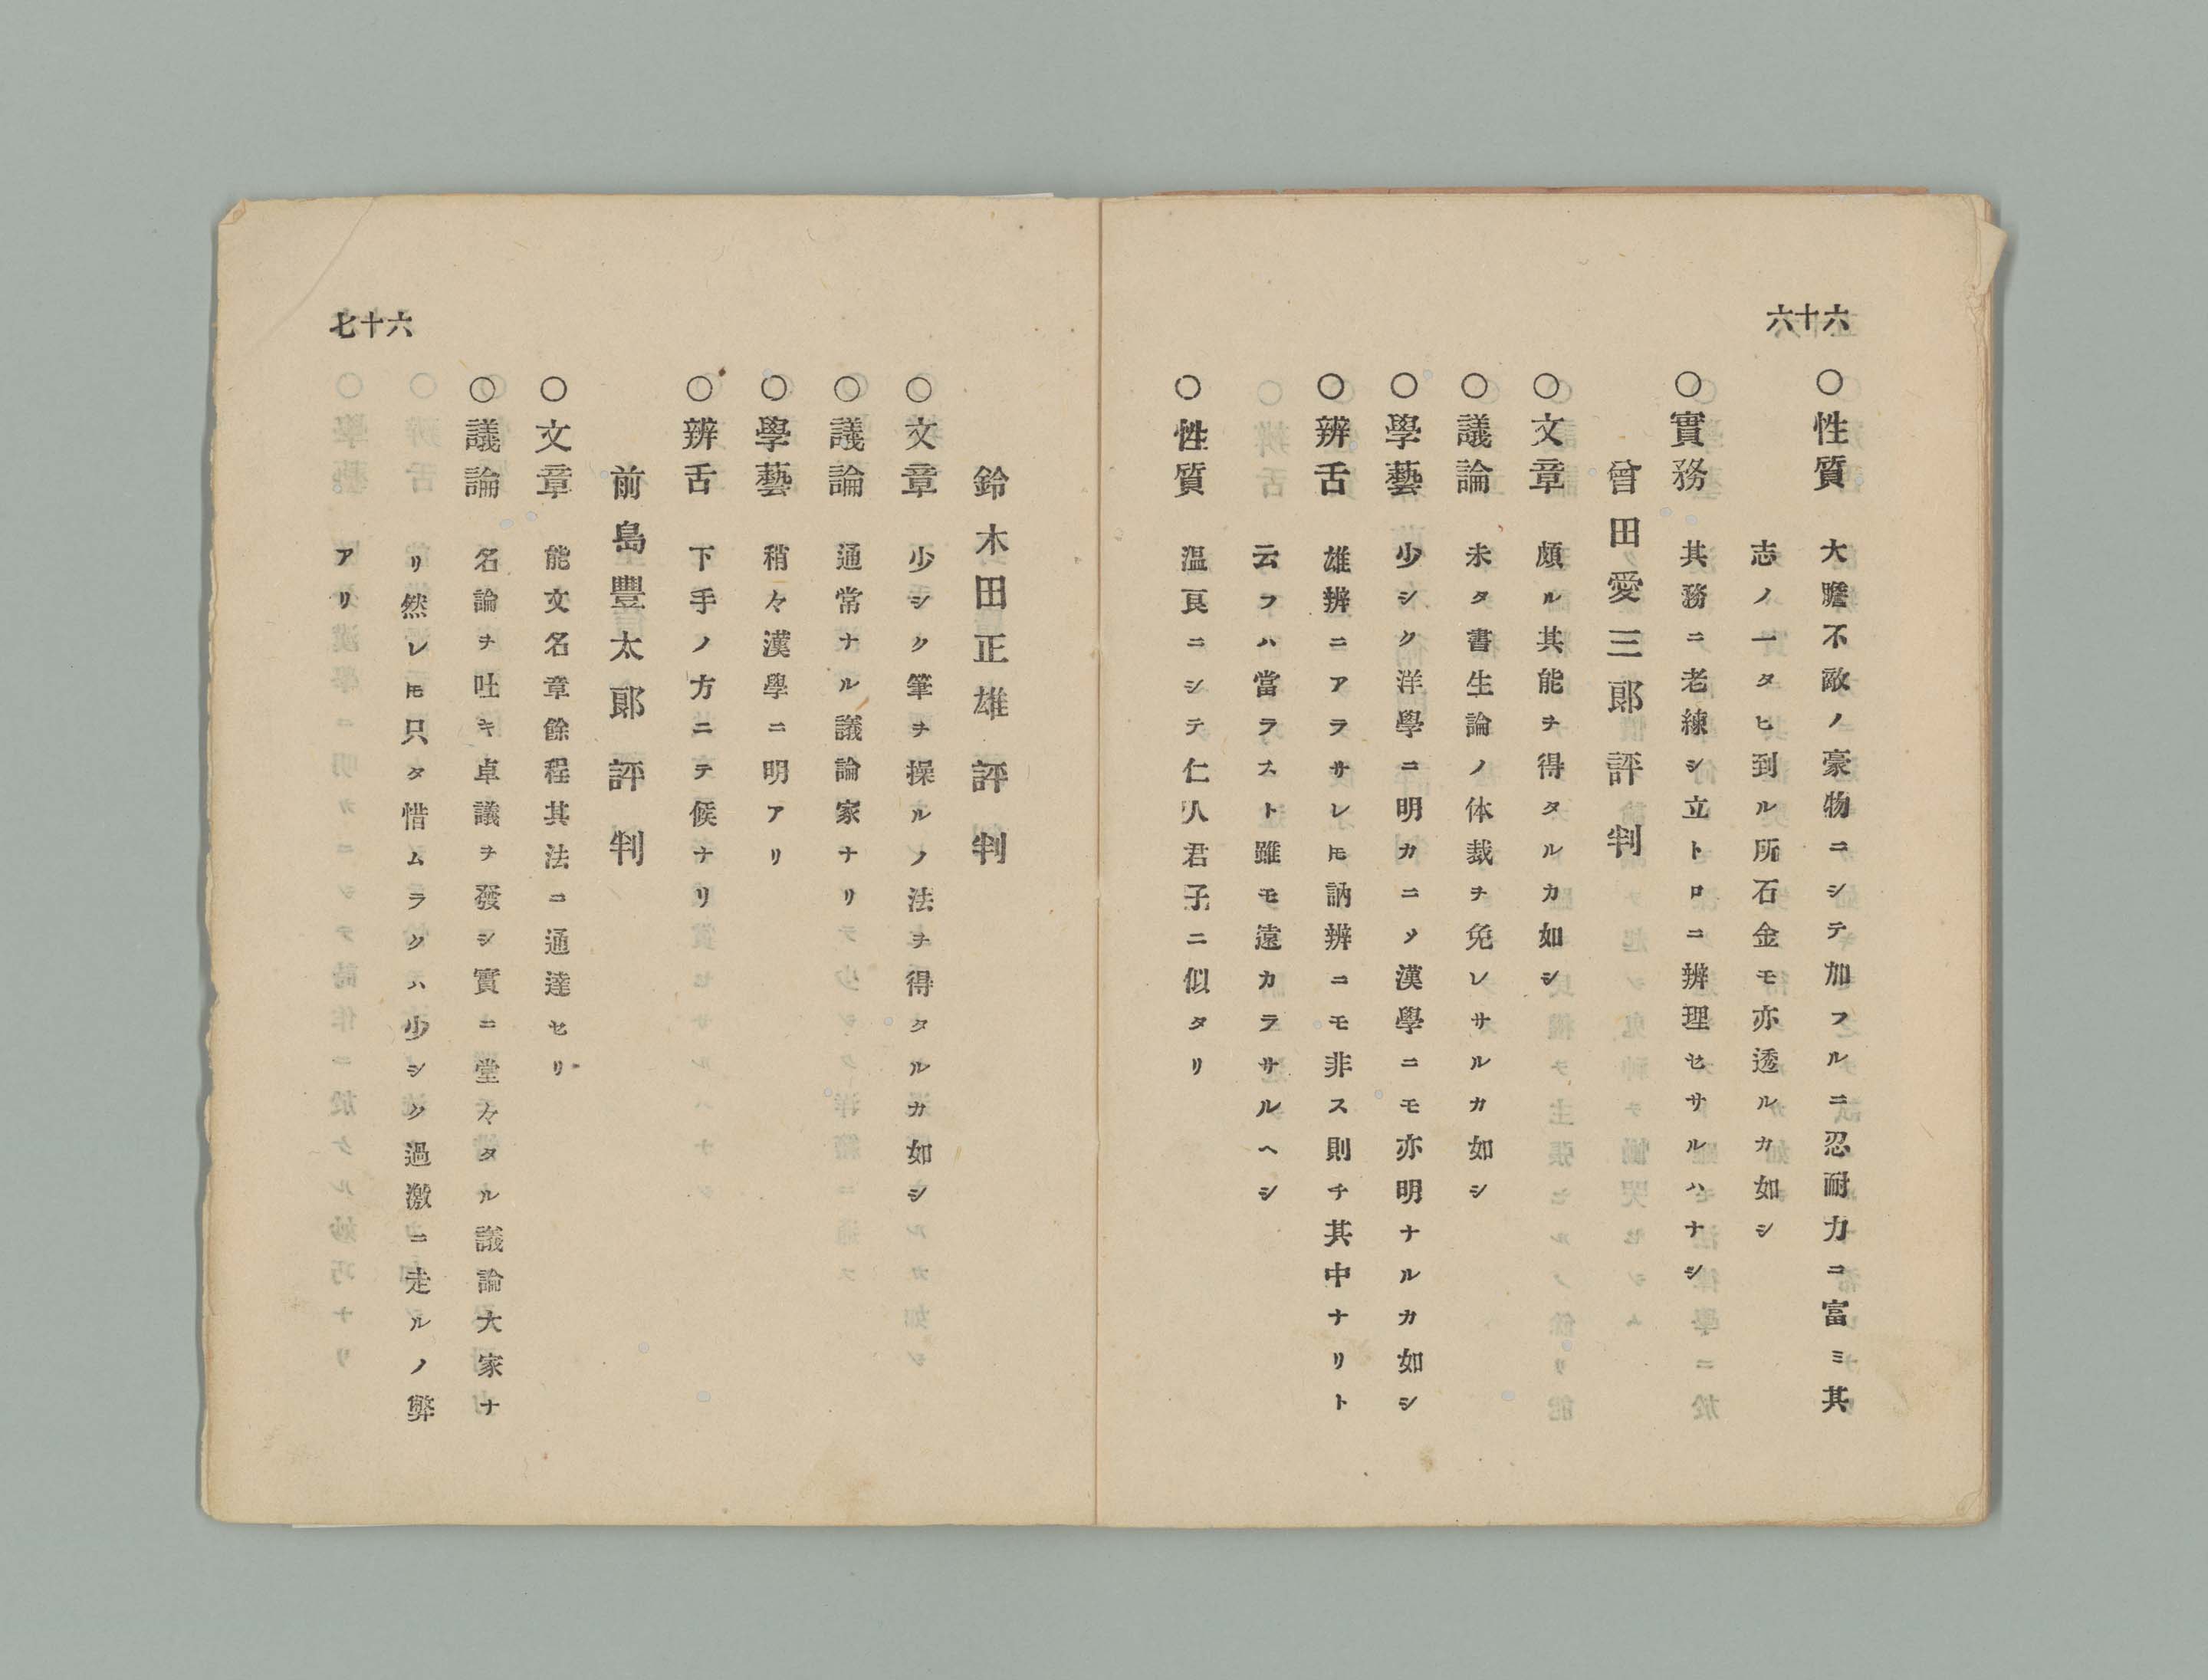 六十六
○性質 大膽不敵ノ豪物ニシテ加フルニ忍耐力ニ富ミ其
志ノ一タヒ到ル所石金モ亦透ルカ如シ
○實務 其務ニ老練シ立トロニ辨理セサルハナシ
曾田愛三郞評判
○文章 頗ル其能ヲ得タルカ如シ
○議論 未タ書生論ノ体裁ヲ免レサルカ如シ
○學藝 少シク洋學ニ明カニメ漢學ニモ亦明ナルカ如シ
○辨舌 雄辨ニアラサレ𪜈訥辨ニモ非ス則チ其中ナリト
云フハ當ラスト雖モ遠カラサルヘシ
○性質 溫良ニシテ仁人君子ニ似タリ
鈴木田正雄評判
○文章 少シク筆ヲ操ルノ法ヲ得タルカ如シ
○議論 通常ナル議論家ナリ
○學藝 稍々漢學ニ明アリ
○辨舌 下手ノ方ニテ候ナリ
前島豐太郞評判
○文章 能文名章餘程其法ニ通達セリ
○議論 名論ヲ吐キ卓議ヲ發シ實ニ堂々タル議論大家ナ
リ然レ𪜈只タ惜ムラクハ少シク過激ニ走ルノ弊
アリ
六十七